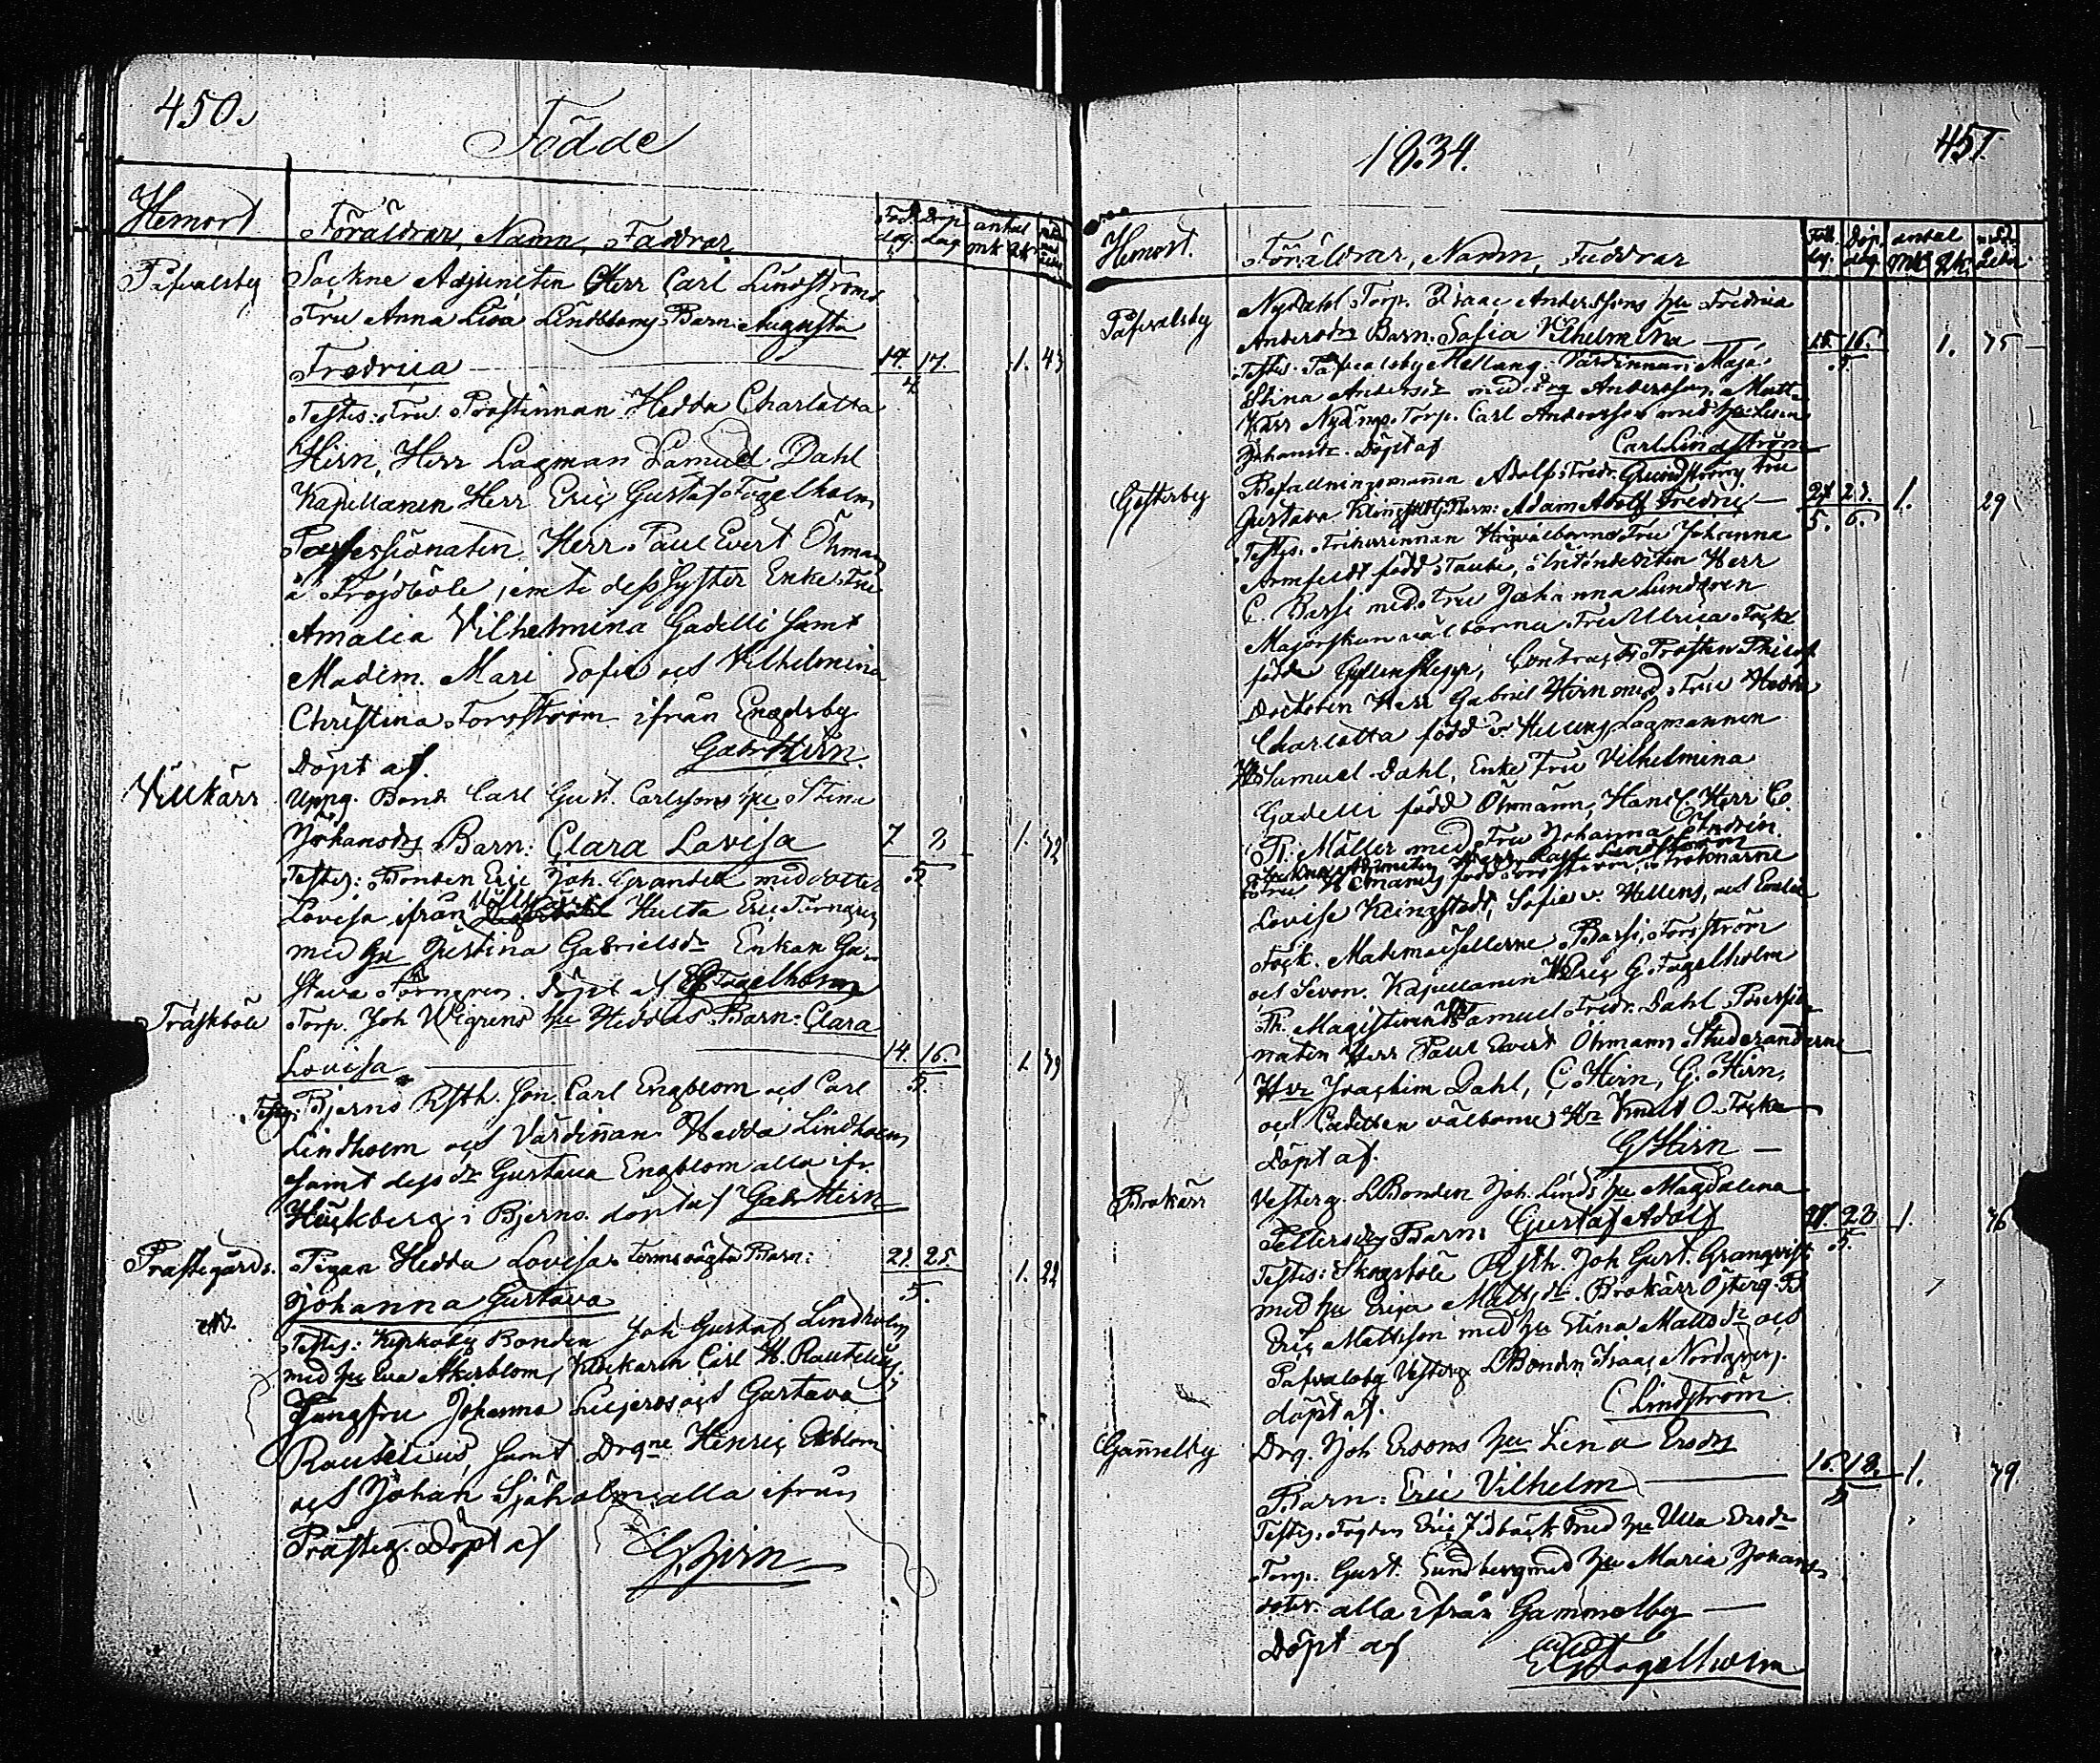 450.
Födde
Hemort
Föräldrar, Namn, Faddrar
Föd. dag. Döp. dag antal mk qk
Pafvalsby
Sockne Adjuncten Herr Carl Lindströms
Fru Anna Lisa Lindbloms Barn: Augusta
Fredrica 14. 17. 1. 43
4
Testis: Fru Prostinnan Hedda Charlotta
Hirn, Herr Lagman Samuel Dahl
Kapellanen Herr Eric Gustaf Fogelholm
Possessionaten Herr Paul Evert Öhman
å Fröjdböle, jemte dess Syster Enke Fru
Amalia Vilhelmina Gadelli samt
Madem. Mari Sofie och Vilhelmina
Christina Forsström ifrån Engdsby
Döpt af. Gabr Hirn.
Villkärr
Uppg. Bond. Carl Gust. Carlssons hu Stina
Johansdrs Barn: Clara Lovisa 7 8 1. 32
5
Testis: Bonden Eric Joh. Grandell med dotter
Lovisa ifrån Hulta Eric Törnqren
med hu Justina Gabrielsdr Enkan Gu-
stava Törngren. Döpt af EG Fogelholm
Träskböle
Torp. Joh Wigrens hu Heddas Barn: Clara
Lovisa 14. 16. 1. 39
5.
Testis: Bjerno Rsth. Son. Carl Engblom och Carl
Lindholm och Värdinnan Hedda Lindholm
samt dess dr Gustava Engblom alla ifr.
Häckberg i Bjerno. döpt af Gabr Hirn
Prästegårds.
Pigan Hedda Lovisas Barn: 21. 25. 1. 22
5.
Johanna Gustava
Testis: Kyrkoby Bonden Joh Gustaf Lindholm
med hu Eva Åkerblom, Klockarn Carl H. Rautelius,
Jungfru Johanna och Gustava
Rautelius, samt Drgne Henric Ekblom
och Johan Sjöholm alla ifrån
Prästeg. Döpt af G. Hirn
1834.
451.
Hemort.
Föräldrar, Namn, Faddrar
Föd. dag. Döp. dag. antal Mk Qk.
Pafvalsby
Nydahl Torp. Isaac Anderssons hu Fredrica
Andersdrs Barn: Sofia Vilhelmina 15. 16. 1. 35
5.
Testis: Pafvalsby Mellang. Värdinnan Maja
Stina Andersdr med drg Andersson, Matt-
Kärr Nydings Torp. Carl Andersson med hu Lena
Johansdr. Döpt af Carl Lindström
Gesterby
Befallningsmannen Adolf Fredr. Grundströms Fru
Gustava Klingstedts Barn: Adam Adolf Fredric 27 23. 1. 29
5. 6.
Testis: Friherrinnan Högvälborna Fru Johanna
Armfeldt född Taube, Intendenten Herr
C. Bassi med Fru Johanna Lundgren
Majorskan välborna Fru Ulrica Fock
födde Gyllenskepp, Contracts Prosten Philos.
Doctoren Herr Gabriel Hirn med Fru Hedda
Charlotta född v Hellens, Lagmannen
Hr Samuel Dahl, Enke Fru Vilhelmina
Gadelli född Öhmann, Handl. Herr C.
Fr. Möller med Fru Johanna Indrén.
Sockne Adjuncten Herr Carl Lindström
Lovise Klingstedt, Sofie v. Hellens, och Emilia
Fock. Mademoisellerne Bassi, Forsström
och Sevon. Kapellanen Hr Eric G. Fogelholm
Ph. Magistern Hr Samuel Fredr. Dahl Possessio-
naten Herr Paul Evert Öhmann Studeranderne
Hrr Joachim Dahl, C. Hirn, G. Hirn,
och Cadetten välborne Hr Knut O. Fock
Döpt af. G Hirn
Brokärr
Vesterg. LBonden Joh. Linds hu Magdalena
Pettersdrs Barn: Gustaf Adolf 21. 23 1. 36
5.
Testis: Skogsböle Rsth. Joh Gust. Granqvist
med hu Erica Mattsdr. Brokärr Österg. B
Eric Mattsson med hu Stina Mattsdr och
Pafvalsby Vesterg LBonden Isaac Nordqren.
döpt af. C Lindström
Gammelby
Drg. Joh Ersons hu Lena Ersdrs
Barn: Eric Vilhelm 16. 18. 1. 39
5
Testis: Fogden Eric Idbäck med hu Ulla Ersdr
Torp. Gust. Sundberg med hu Maria Johans
doter. alla ifrån Gammelby
Döpt af EG Fogelholm